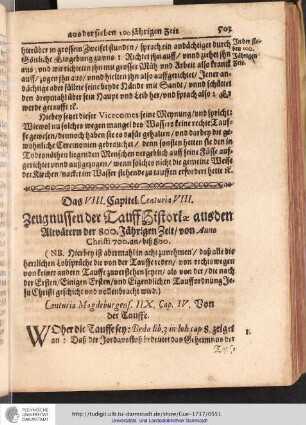 aus der sieben 100 jährigen Zeit 503
hierüber in grossem Zweifel stunden / sprach ein andächtiger durch
Göttliche Eingebung zu uns: Richtet ihn auff / und ziehet ihn
aus / und wir richteten ihn mit grosser Müh und Arbeit also kranck
auff / zogen ihn aus / und hielten ihn also auffgerichtet / Jener an-
dächtige aber füllete seine beyde Hände mit Sand / und schüttet
den dreymahl über sein Haupt und Leib her / und sprach also:
werde getaufft
In der sie-
ben 100.
Jährigen
Zeit.
Hierbey setzet dieser Vicecomes seine Meynung / und spricht
Wiewol nu solches wegen mangel des Wassers keine rechte Tauf-
fe gewesen / dennoch haben sie es dafür gehalten / und darbey die ge-
wöhnliche Ceremonien gebrauchet / wenn sonsten sie den in
Todesnöthen liegenden Menschen vergeblich auff seine Füsse auff-
gerichtet und aufgezogen: wenn solches nicht die gemeine Weise
der Kirchen / nackt im Wasser stehende zu tauffen erfordert hette
Das VIII. Capitel. Centuria VIII.
Zeugnussen der Tauff Historiæ aus den
Altvätern der 800. Jährigen Zeit / von Anno
Christi 700. an / biß 800.
(NB. Hierbey ist abermahl in acht zunehmen / daß alle die
herrlichen Lobsprüche die von der Tauffe reden / von rechts wegen
von keiner andern Tauffe zuverstehen seyen / als von der / die nach
der Ersten / Einigen Ersten / und Eigendlichen Tauffordnung Je-
su Christi geschicht und vollenbracht wird.)
Centuria Magdeburgens. IIX. Cap. IV. Von
der Tauffe.
WOher die Tauffe sey: Beda lib. 3 in Job cap 8. zeiget
an: Daß der Jordansfluß bedeutet das Geheimnus der
1.
http://tudigit.ulb.tu-darmstadt.de/show/Cue-1717/0551
Universitäts- und Landesbibliothek Darmstadt